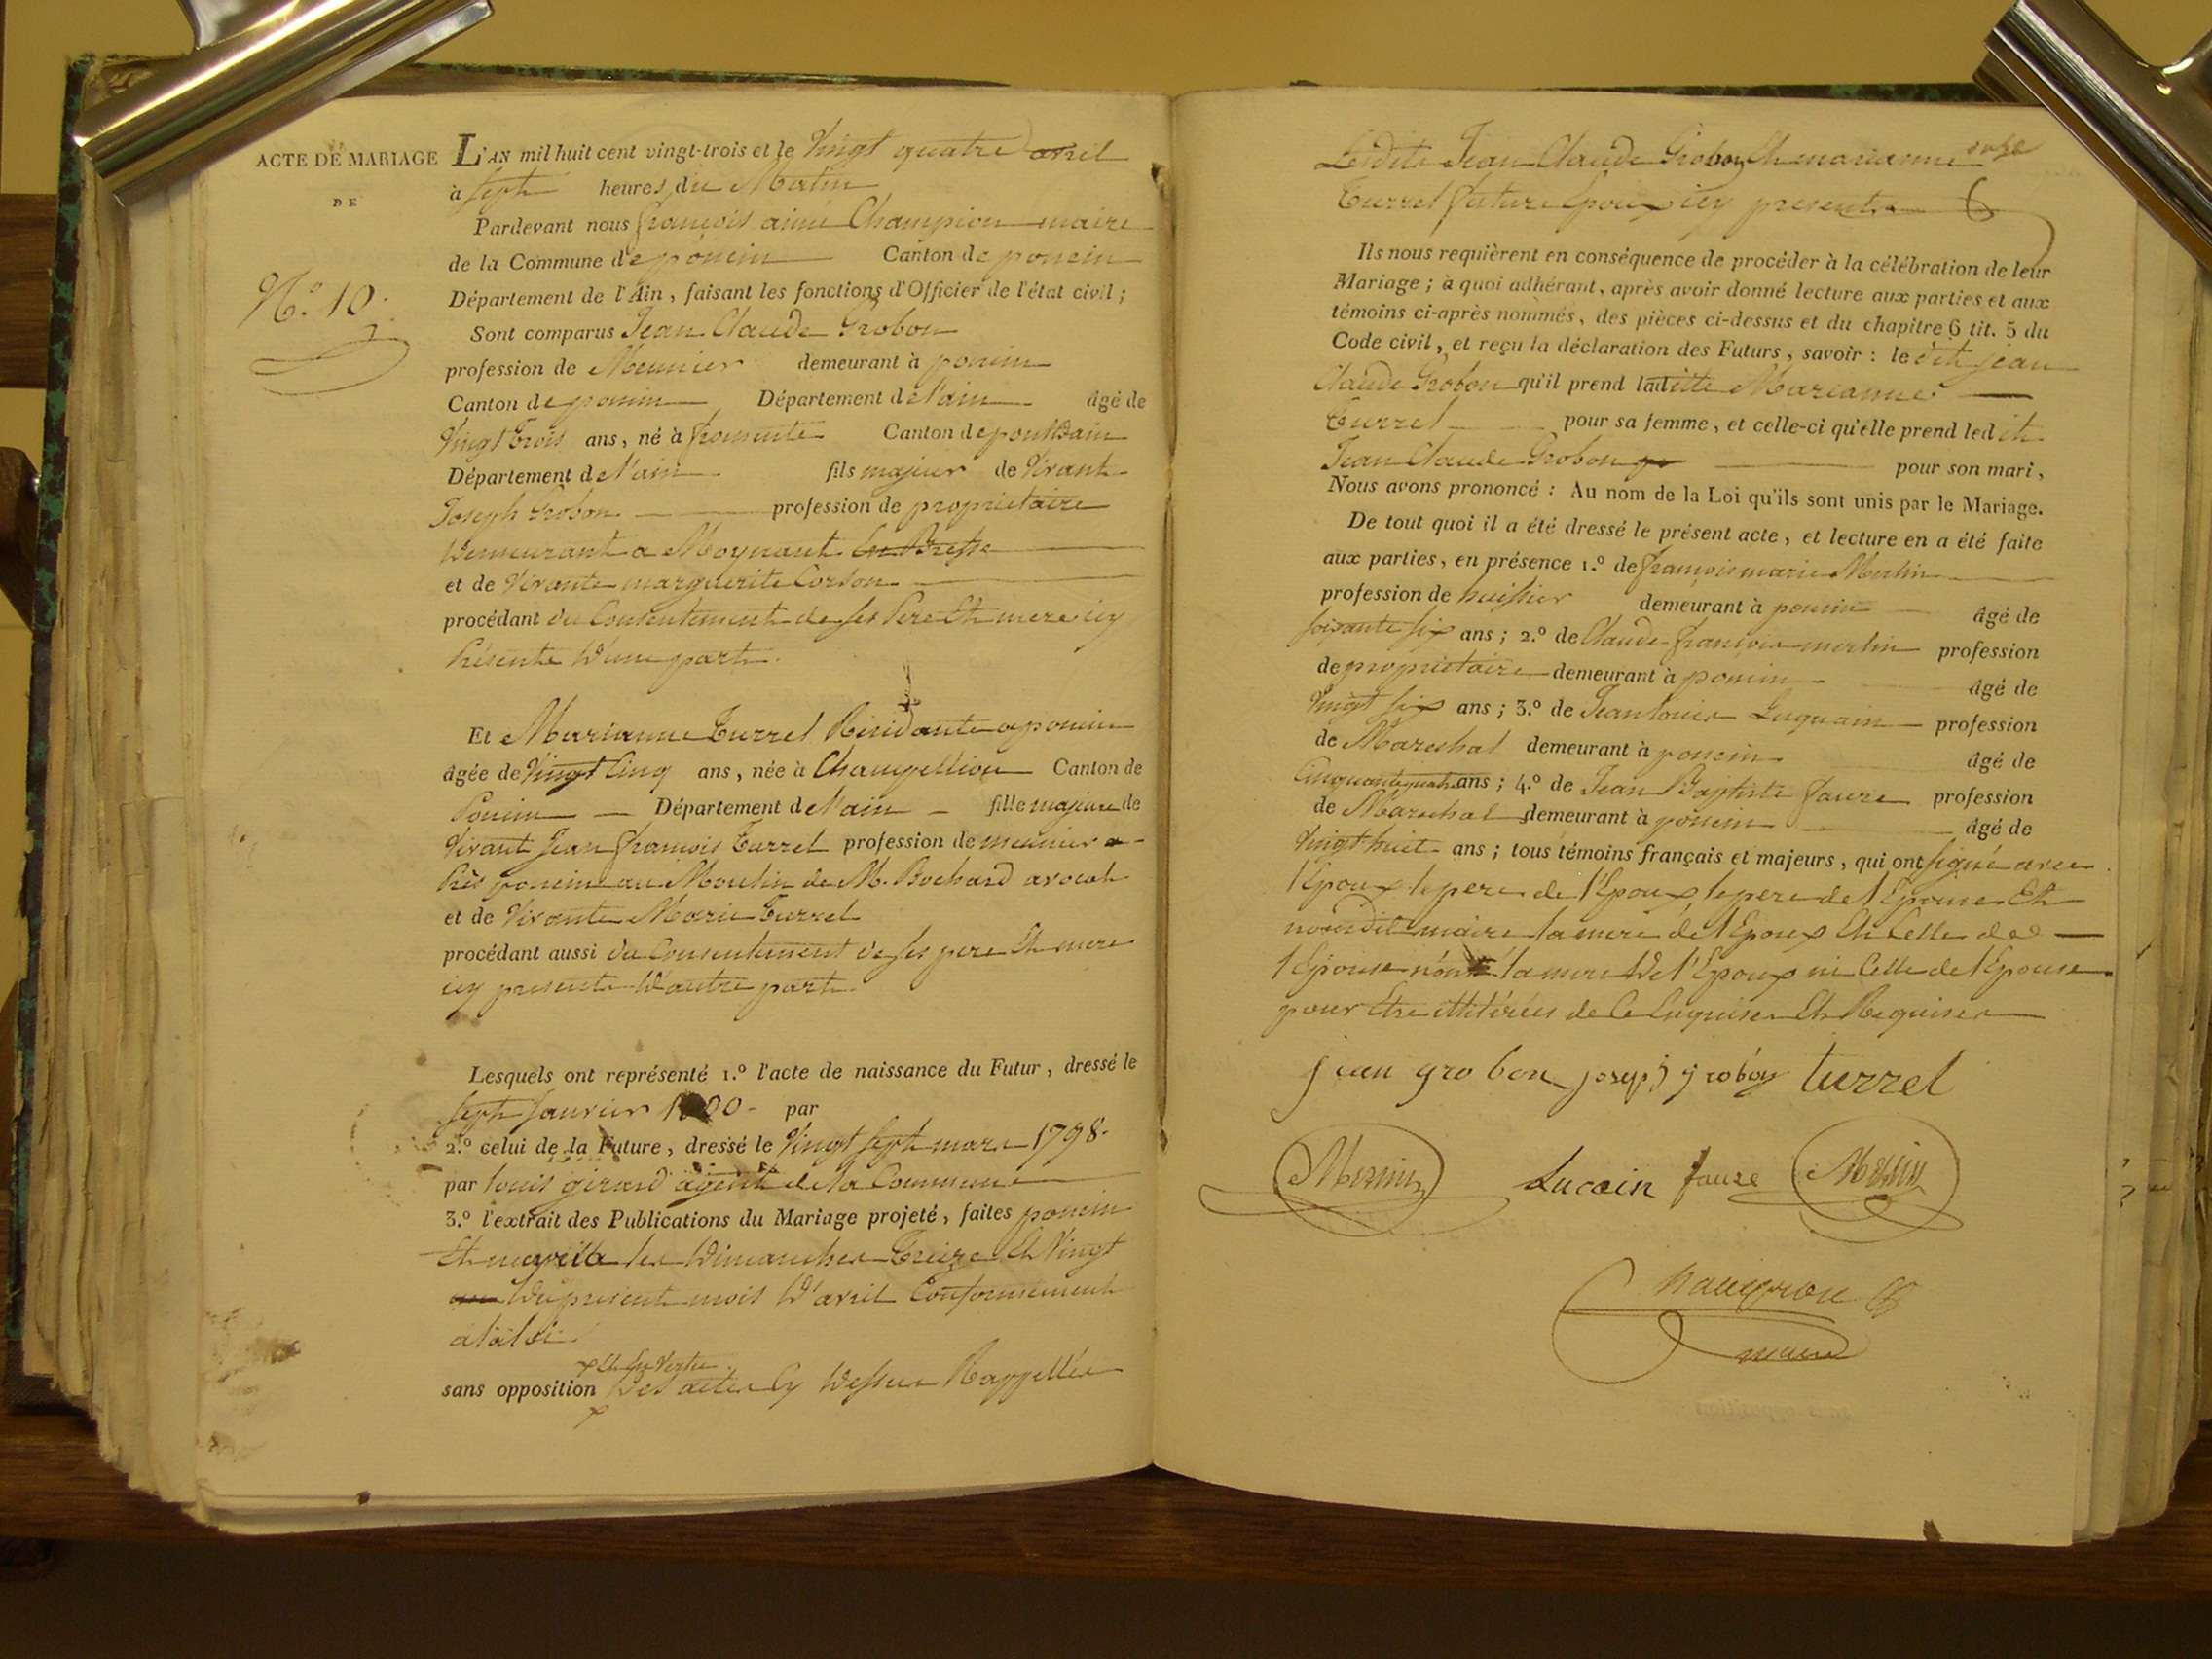 ACTE DE MARIAGE
DE
N.º 10.
L'AN mil huit cent vingt-trois et le Vingt quatre avril
à Sept heures du Matin
Pardevant nous françois aimé Champion maire
de la Commune de poncin Canton de poncin
Département de l'Ain, faisant les fonctions d'Officier de l'état civil;
Sont comparus Jean Claude Grobon
profession de Meunier demeurant à poncin
Canton de poncin Département de l'ain âgé de
Vingt trois ans, né à fromente Canton de pontdain
Département de l'ain fils majeur de Vivant
Joseph Grobon profession de proprietaire
Demeurant a En Bresse
et de Vivante marguerite Corton
procédant du Consentement de ses Pere Et mere icy
Présents D'une part.
Et Marianne Turrel Residante a poncin
âgée de Vingt Cinq ans, née à Champellion Canton de
Poncin Département de l'ain fille majeure de
Vivant Jean françois Turrel profession de meunier a
Près poncin au Moulin de M. Bochard avocat
et de Vivante Marie Turrel
procédant aussi du Consentement de ses pere Et mere
icy presents D'autre part.
Lesquels ont représenté 1.º l'acte de naissance du Futur, dressé le
Sept Janvier 1800 - par
2.º celui de la Future, dressé le Vingt Sept mars 1798.
par louis girard agent de la Commune
3.º l'extrait des Publications du Mariage projeté, faites poncin
Et les Dimanches Treize Et Vingt
Du present mois D'avril Conformement
a la loi
x Et En Vertu
sans opposition Des actes Cy Dessus Rappellés
x
Lesdits Jean Claude Grobon Et marianne
Turrel future Epoux icy presents
Ils nous requièrent en conséquence de procéder à la célébration de leur
Mariage; à quoi adhérant, après avoir donné lecture aux parties et aux
témoins ci-après nommés, des pièces ci-dessus et du chapitre 6 tit. 5 du
Code civil, et reçu la déclaration des Futurs, savoir: le dit jean
Claude Grobon qu'il prend ladite Marianne
Turrel pour sa femme, et celle-ci qu'elle prend ledit
Jean Claude Grobon pour son mari,
Nous avons prononcé: Au nom de la Loi qu'ils sont unis par le Mariage.
De tout quoi il a été dressé le présent acte, et lecture en a été faite
aux parties, en présence 1.º de françois marie Merlin
profession de huissier demeurant à poncin âgé de
soixante six ans; 2.º de Claude françois merlin profession
de proprietaire demeurant à poncin âgé de
Vingt six ans; 3.º de Jean louis Luquain profession
de Mareshal demeurant à poncin âgé de
Cinquante quatre ans; 4.º de Jean Baptiste faure profession
de Mareshal demeurant à poncin âgé de
Vingt huit ans; tous témoins français et majeurs, qui ont signé avec
l'Epoux le pere de l'Epoux le pere de l'Epouse Et
nous dit maire la mere de l'Epoux Et Celle de
l'Epouse la mere De l'Epoux ni Celle de l'Epouse
pour Etre illitérées de Ce Enquises Et Requises
jean grobon joseph grobon turrel
Merlin Lucain faure Merlin
maire